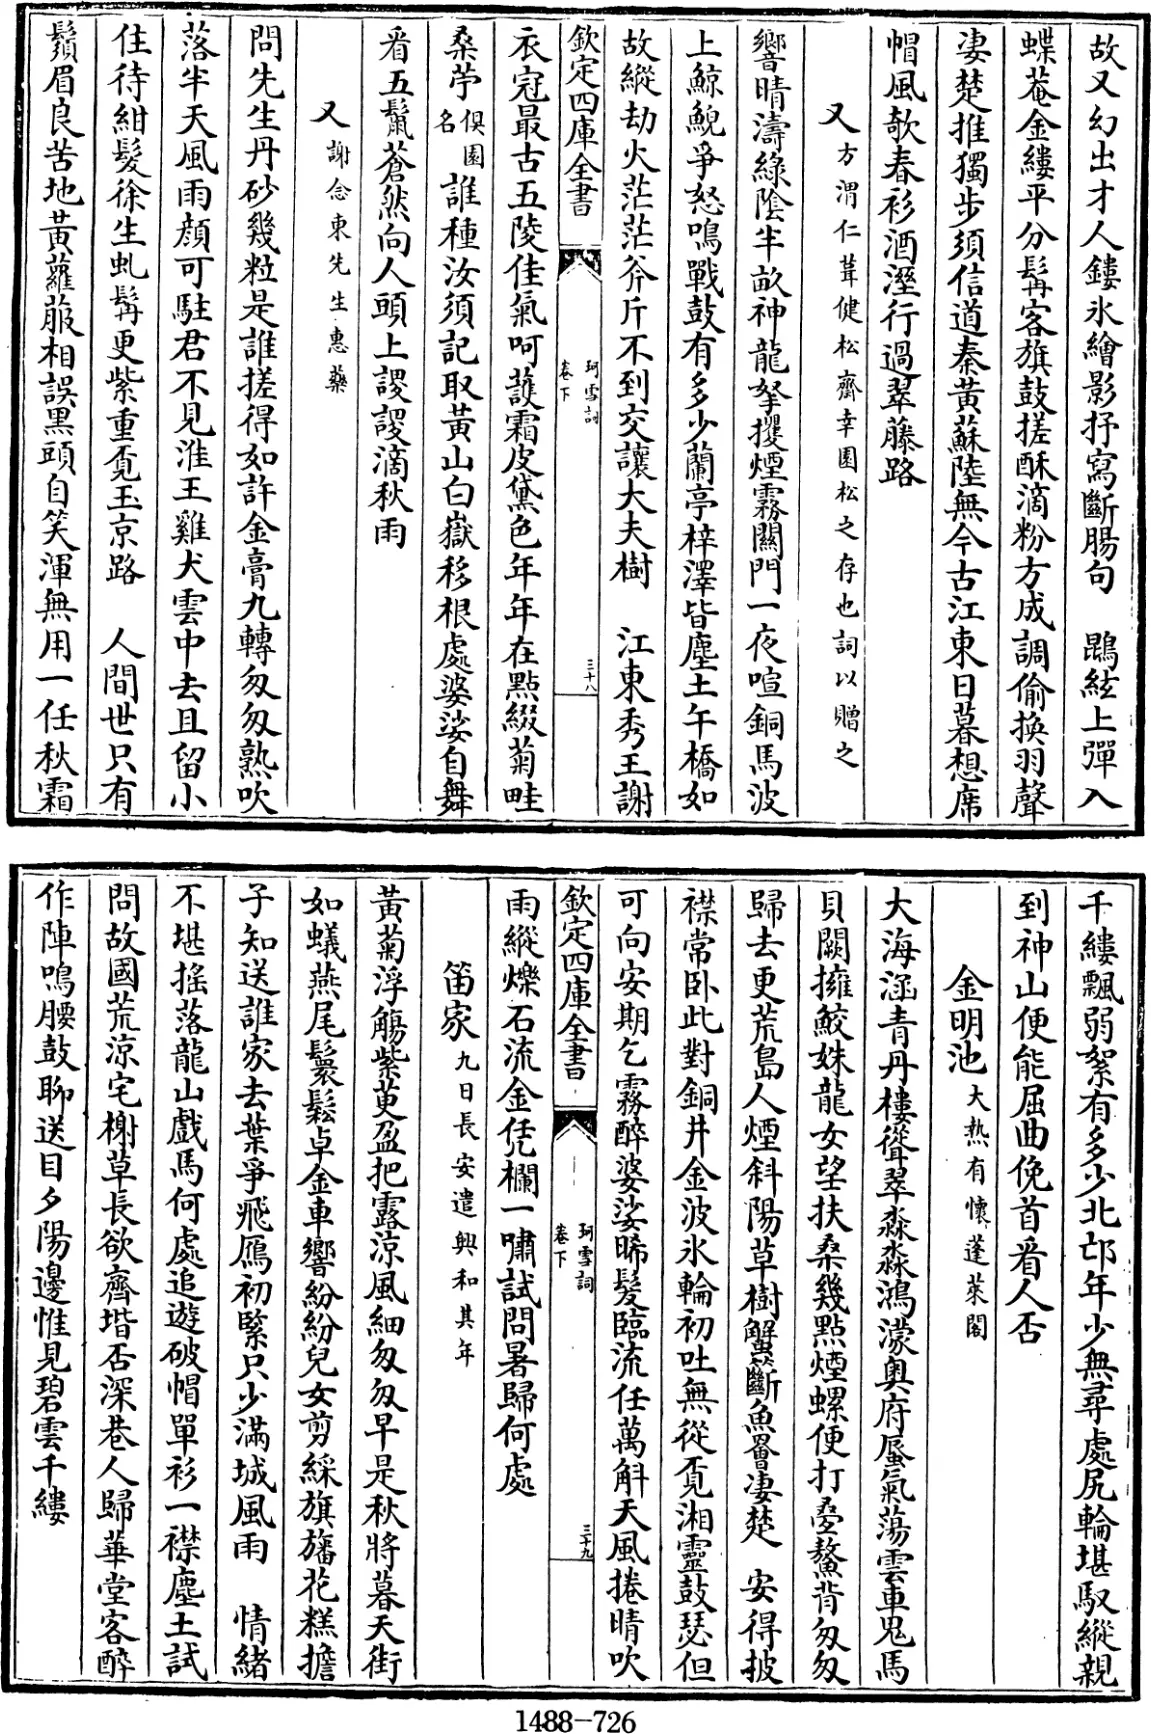 故又幻出才人鏤氷繪影抒寫斷腸句　鵾絃上彈入
蝶菴金縷平分髯客旗鼓搓酥滴粉方成調偷換羽聲
凄楚推獨步須信道秦黃蘇陸無今古江東日暮想席
帽風欹春衫酒溼行過翠藤路
又方渭仁葺健松齋幸園松之存也詞以贈之
響晴濤綠陰半畝神龍拏攫煙霧闗門一夜喧銅馬波
上鯨鯢爭怒鳴戰鼓有多少蘭亭梓澤皆塵土午橋如
故縱劫火茫茫斧斤不到交讓大夫樹　江東秀王謝
欽定四庫全書
珂雪詞
卷下
三十八
衣冠最古五陵佳氣呵護霜皮黛色年年在點綴菊畦
桑苧俱園名誰種汝須記取黃山白嶽移根處婆娑自舞
看五鬣蒼然向人頭上謖謖滴秋雨
又謝念東先生惠藥
問先生丹砂幾粒是誰搓得如許金膏九轉匆匆熟吹
落半天風雨顔可駐君不見淮王雞犬雲中去且留小
住待紺髮徐生虬髯更紫重覓玉京路　人間世只有
鬚眉良苦地黃蘿服相誤黑頭自笑渾無用一任秋霜
千縷飄弱絮有多少北邙年少無尋處尻輪堪馭縱親
到神山便能屈曲俛首看人否
金明池大熱有懷蓬萊閣
大海涵青丹樓聳翠淼淼鴻濛奥府蜃氣蕩雲車鬼馬
貝闕擁鮫姝龍女望扶桑幾點煙螺便打疊鰲背匆匆
歸去更荒島人煙斜陽草樹蟹籪魚罾凄楚　安得披
襟常卧此對銅井金波氷輪初吐無從覓湘靈鼓瑟但
可向安期乞霧醉婆娑晞髮臨流任萬斛天風捲晴吹
欽定四庫全書
珂雪詞
卷下
三十九
雨縱爍石流金凭欄一嘯試問暑歸何處
笛家九日長安遣興和其年
黃菊浮觴紫萸盈把露涼風細匆匆早是秋將暮天街
如蟻燕尾鬟鬆卓金車響紛紛兒女剪綵旗旛花糕擔
子知送誰家去葉爭飛鴈初緊只少滿城風雨　情緒
不堪摇落龍山戲馬何處追遊破帽單衫一襟塵土試
問故國荒涼宅榭草長欲齊堦否深巷人歸華堂客醉
作陣鳴腰鼓聊送目夕陽邊惟見碧雲千縷
1488-726